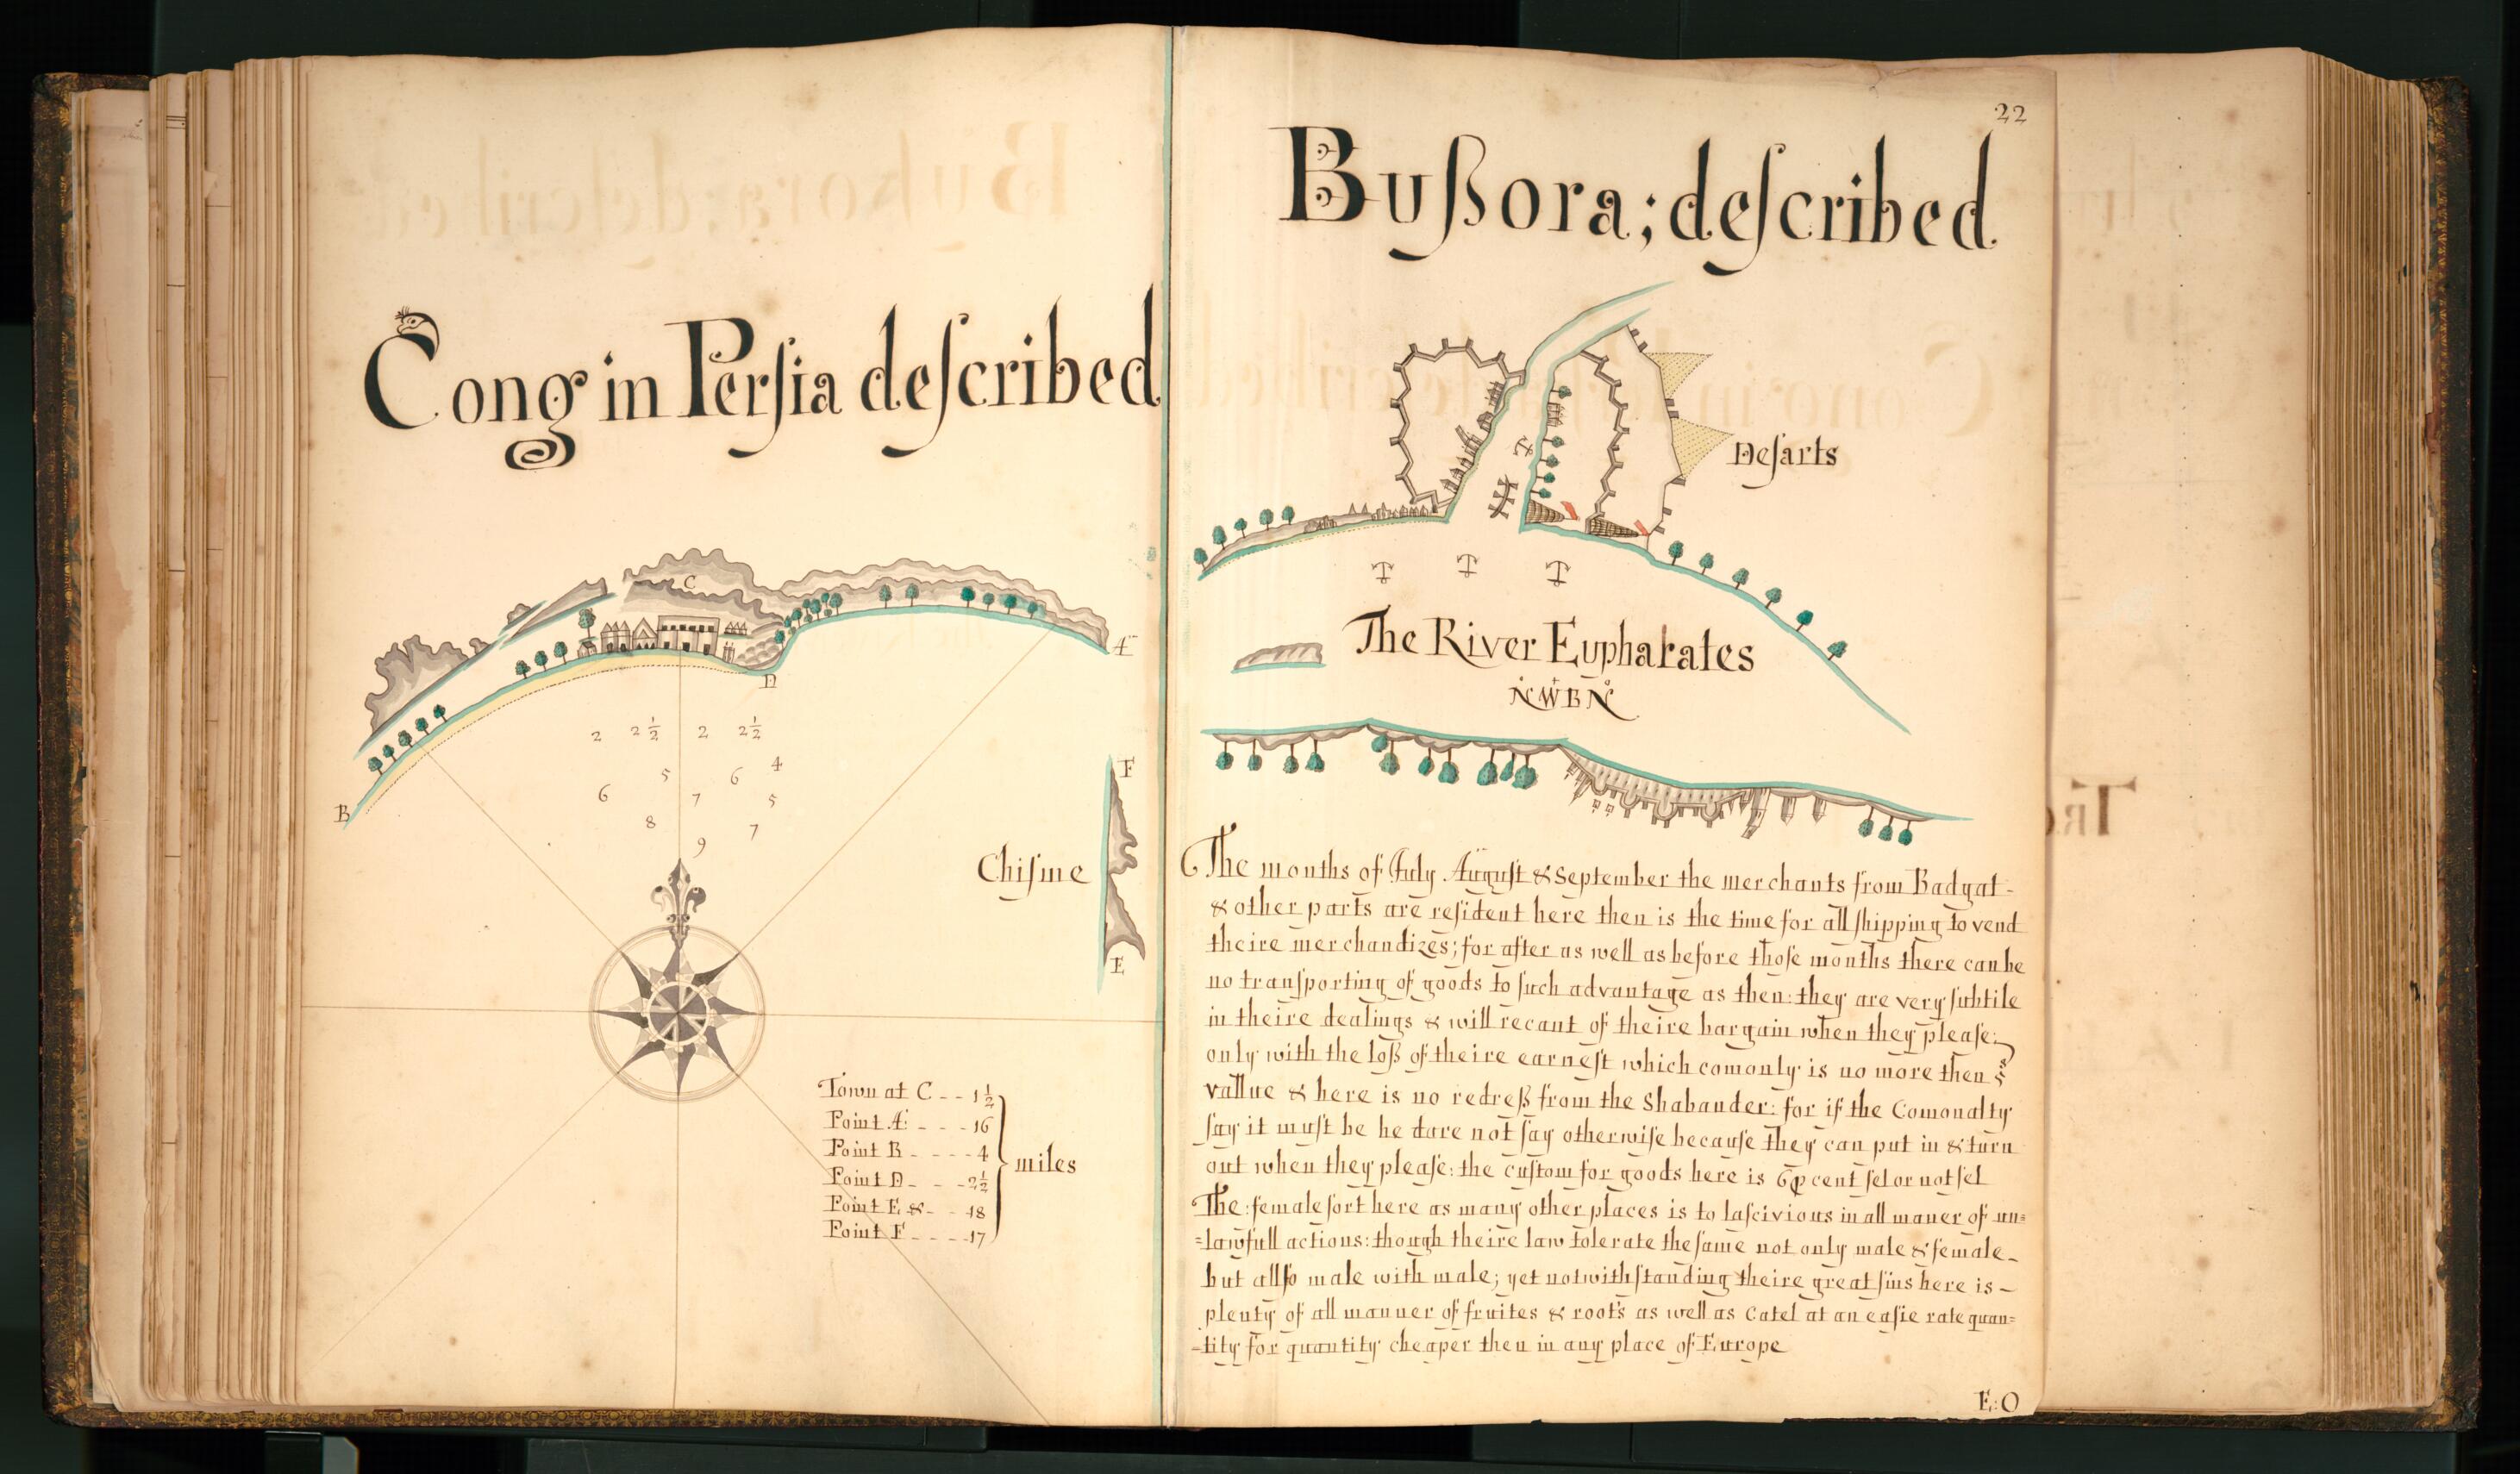 Cong in Perſia deſcribed
C
A
D
B
2 2½ 2 2½
5 6 4
6 7 5
8 7
9
F
Chiſme
E
Town at C - - 1½
Point A: - - - 16
Point B - - - - 4
Point D - - - 2½
Point E & - - 18
Point F - - - - 17
miles
22
Bußora; deſcribed
Deſarts
The River Eupharates
N W B N
The months of July August & September the merchants from Badgat -
& other parts are reſident here then is the time for all ſhipping to vend
theire merchandizes; for after as well as before thoſe months there can be
no tranſporting of goods to ſuch advantage as then: they are very ſubtile
in theire dealings & will recant of theire bargain when they pleaſe:
only with the loß of theire earneſt which comonly is no more then 5s
vallue & here is no redreß from the Shabander: for if the Comonalty
ſay it muſt be he dare not ſay otherwiſe becauſe they can put in & turn
out when they pleaſe: the cuſtom for goods here is 6 p cent ſel or not ſel
The: female ſort here as many other places is to laſcivious in all maner of un=
=lawfull actions: though theire law tolerate the ſame not only male & female -
but allſo male with male; yet notwithſtanding theire great ſins here is -
plenty of all manner of fruites & roots as well as Catel at an eaſie rate quan=
-tity for quantity cheaper then in any place of Europe
E:O